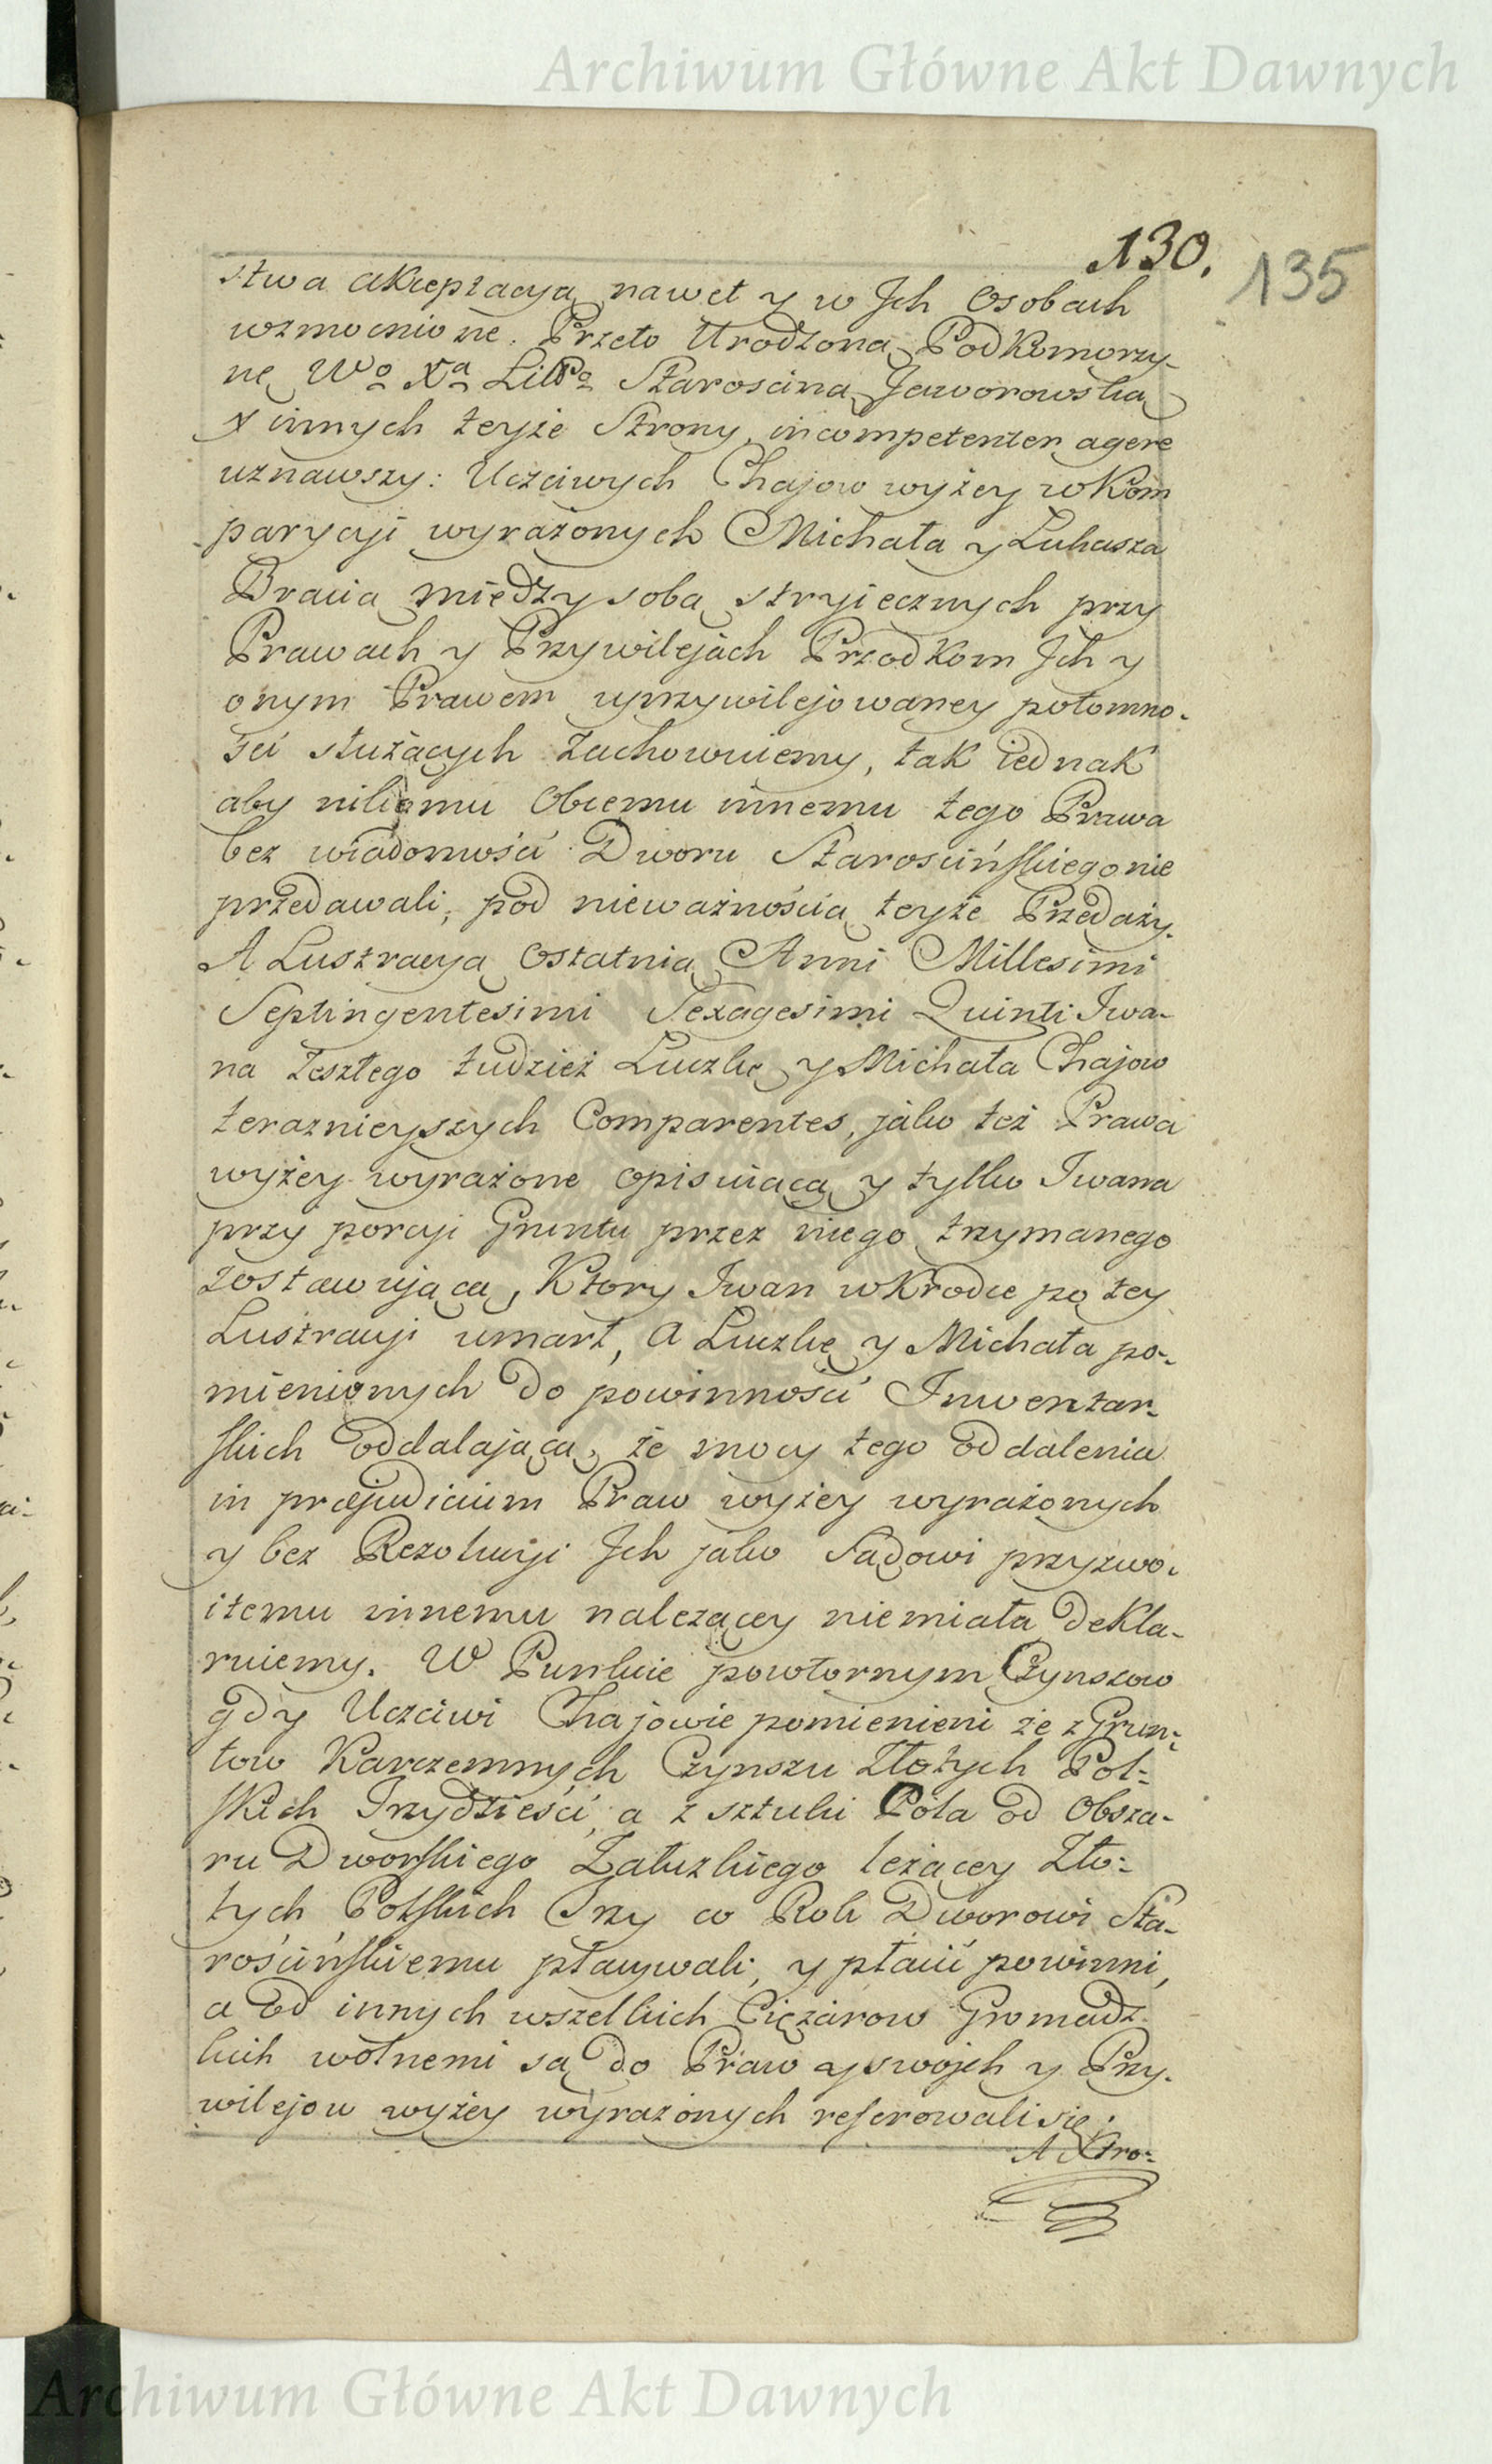 Archiwum Główne Akt Dawnych
130.
135
stwa akceptacyą nawet y w Jch Osobach
wzmocnione. Przeto Urodzoną Podkomorzy-
nę Wo Xa Litto Starościną Jaworowską
z innych teyże Strony, incompetenter agere
uznawszy: Uczciwych Chajow wyżey w Kom
parycyi wyrażonych Michała y Łukasza
Bracia między sobą stryiecznych przy
Prawach y Przywilejach Przodkom Jch y
onym Prawem uprzywilejowaney potomno-
ści służących zachowuiemy, tak iednak
aby nikomu Obcemu innemu tego Prawa
bez wiadomości Dworu Starościńskiego nie
przedawali, pod nieważnością teyże Przedaży.
A Lustracyą Ostatnią Anni Millesimi
Septingentesimi Sexagesimi Quinti Iwa-
na Zeszłego tudzież Łuczkę y Michała Chajow
teraznieyszych Comparentes, jako też Prawa
wyżey wyrażone opisuiącą y tylko Iwana
przy porcyi Gruntu przez niego trzymanego
zostawującą, Ktory Iwan w Krodce po tey
Lustracyi umarł, a Łuczkę y Michała po-
mienionych do powinności Inwentar-
skich oddalającą, że mocy tego oddalenia
in præjudicium Praw wyżey wyrażonych
y bez Rezolucyi Jch jako Sądowi przyzwo-
itemu innemu należącey niemiała dekla-
ruiemy. W Punkcie powtornym Czynszow
gdy Uczciwi Chajowie pomienieni że z Grun-
tow Karczemnych Czynszu Złotych Pol-
skich Trzydzieści, a z sztuki Pola od Obsza-
ru Dworskiego Załuzkiego leżącey Zło-
tych Polskich Trzy co Rok Dworowi Sta-
rościńskiemu płacywali, y płacić powinni,
a od innych wszelkich Ciężarow Gromadz-
kich wolnemi są do Praw y swojch y Przy-
wilejow wyżey wyrażonych referowali się.
A Stro-
Archiwum Główne Akt Dawnych